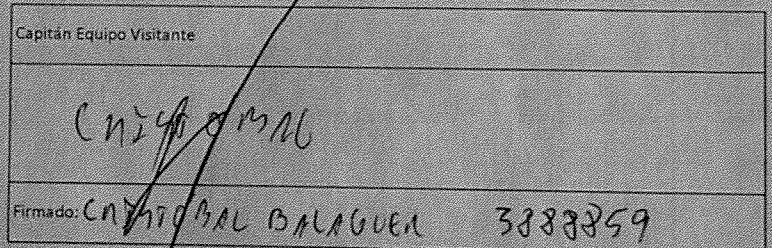 Capitán Equipo Visitante
CRISTOBAL
Firmado: CRISTOBAL BALAGUER 3888859